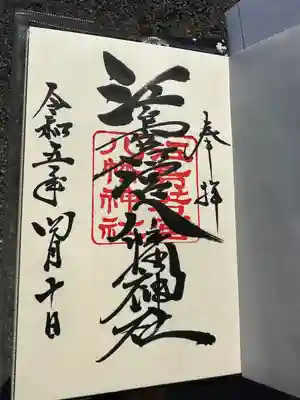 奉拝
江島若宮八幡神社
令和五年四月十日